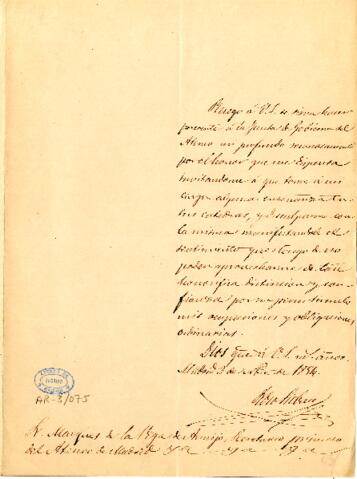 Ruego á V.S. se sirva hacer
presente á la Junta de Gobierno del
Ateneo mi profundo reconocimiento
por el honor que me dispensa
invitandome á que tome á mi
cargo alguna enseñanza en
sus catedras, y disculparme con
la misma manifestandole el
sentimiento que tengo de no
poder aprovecharme de tan
honorifica distincion y
por no permitirmelo
mis ocupaciones y obligaciones
ordinarias.
Dios gue á V.S. ms. años.
Madrid 3 de 1884.
AR-3/075
Sr. Marques de la Vega de Armijo, Secretario primero
del Ateneo de Madrid